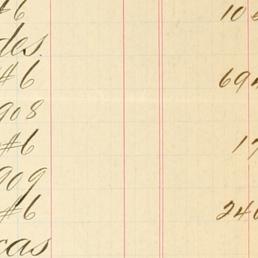 #6 10
des.
#6 69
908
#6 17
909
#6 240
cas